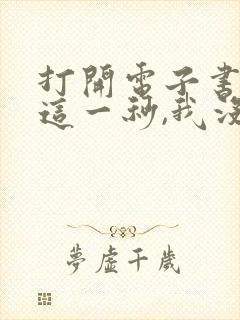 打開電子書
這一秒,我沒
夢虛千歲